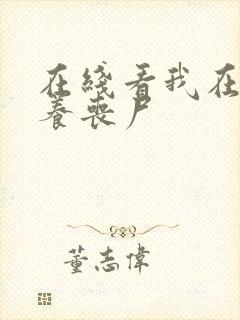 在线看我在
养丧尸
董志偉